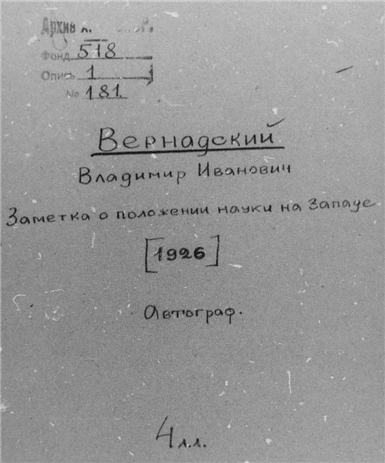 Архив
Фонд 518
Опись 1
№ 181.
Вернадский
Владимир Иванович
Заметка о положении науки на Западе
[1926]
Автограф.
4 л.л.